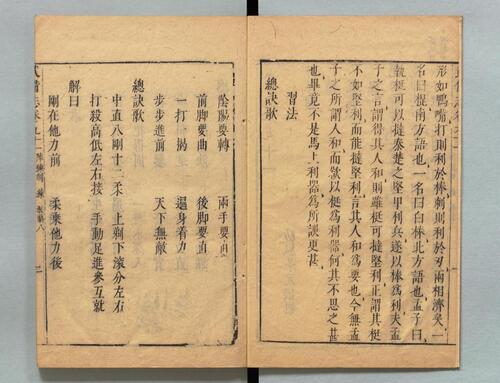 形如鴨嘴打則利於棒刺則利於刃兩相濟矣一
名曰棍南方語也一名曰白棒北方語也孟子曰
執梃可以撻秦楚之堅甲利兵遂以棒爲利夫孟
子之言謂得其人和則雖梃可撻堅利正謂其梃
不如堅利而能撻堅利言其人和爲要也今無孟
子之所謂人和而欲以梃爲利器何其不思之甚
也畢竟不是馬上利器爲所誤更甚
習法
總訣歌
陰陽要轉 兩手要直
前脚要曲 後脚要直
一打一揭 遍身着力
步步進前 天下無敵
總訣歌
中直八剛十二柔 上剃下滾分左右
打殺高低左右接 手動足進參互就
解曰
剛在他力前 柔乘他力後
武備志卷九十二 陣練制 練 教藝八 二